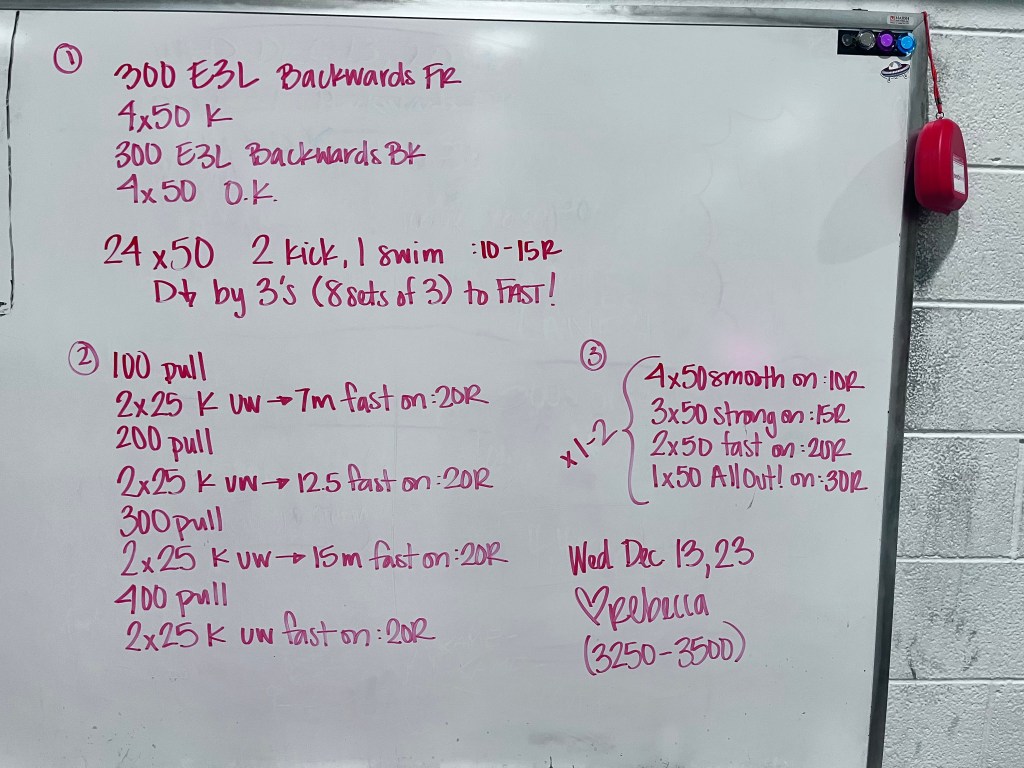 ①
300 E3L Backwards FR
4x50 K
300 E3L Backwards BK
4x50 O.K.
24 x50 2 kick, 1 swim :10-15R
D↓ by 3's (8 sets of 3) to FAST!
② 100 pull
2x25 K UW → 7m fast on :20R
200 pull
2x25 K UW → 12.5 fast on :20R
300 pull
2x25 K UW → 15m fast on :20R
400 pull
2x25 K UW fast on :20R
③
x1-2
4x50 smooth on :10R
3x50 strong on :15R
2x50 fast on :20R
1x50 All Out! on :30R
Wed Dec 13, 23
♡Rebecca
(3250-3500)